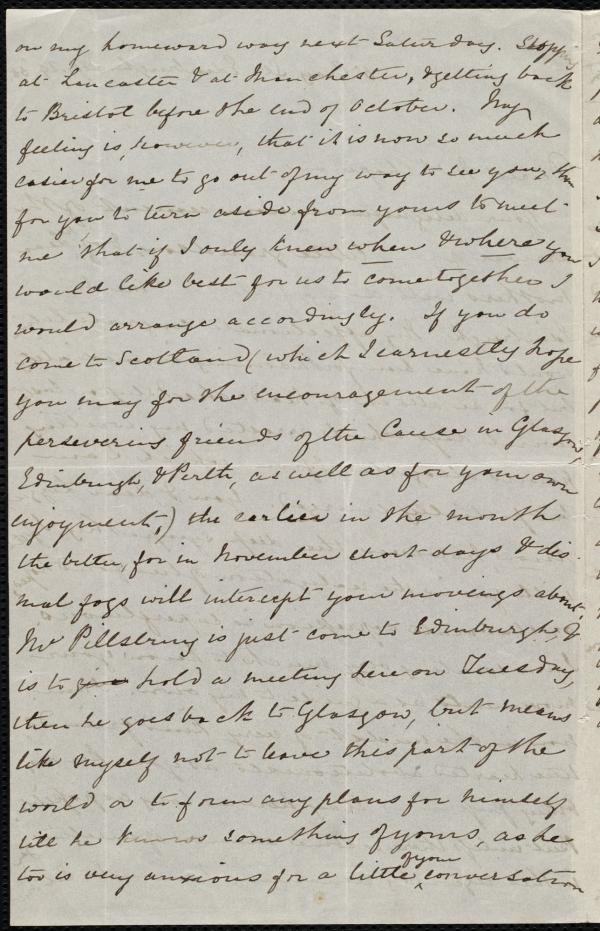 on my homeward way next Saturday. Stopping
at Lancaster & at Manchester, & getting back
to Bristol before the end of October. My
feeling is, however, that it is now so much
easier for me to go out of my way to see you, than
for you to turn aside from yours to meet
me that if I only knew when & where you
would like best for us to come together I
would arrange accordingly. If you do
come to Scotland (which I earnestly hope
you may for the encouragement of the
persevering friends of the Cause in Glasgow,
Edinburgh, & Perth, as well as for your own
enjoyment,) the earlier in the month
the better, for in November short days & dis-
mal fogs will intercept your movings about.
Mr Pillsbury is just come to Edinburgh, &
is to give hold a meeting here on Tuesday,
then he goes back to Glasgow, but means
like myself not to leave this part of the
world or to form any plans for himself
till he knows something of yours, as he
too is very anxious for a little of your conversation